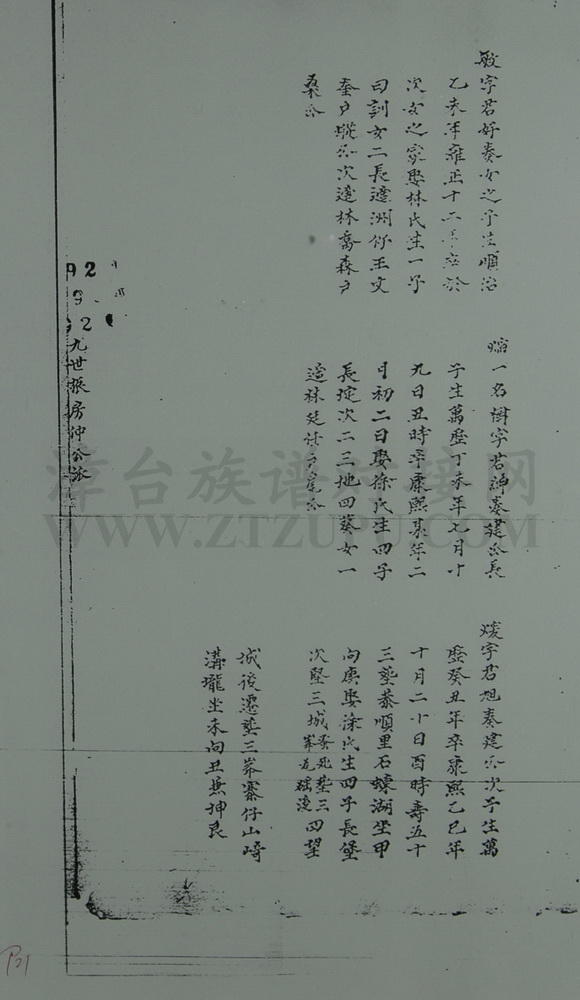 敏字君好奏女之子生順治
乙未年雍正十二年卒於
次女之家娶林氏生一子
曰訓女二長適洲仔王文
奎戶 公次適林喬森戶
桑公
一名樹字君 奏建公長
子生萬曆丁未年七月十
九日丑時卒康熙某年二
月初二日娶徐氏生四子
長埞次二三地四 女一
適林廷 戶 公
煖字君旭奏建公次子生萬
曆癸丑年卒康熙乙巳年
十月二十日酉時壽五十
三塟恭順里石 湖坐甲
向庚娶涂氏生四子長堡
次堅三城 死塟三 四望
城後遷塟三 寨仔山崎
溝壠坐未向丑兼坤艮
92
9
92
九世振房仲公派
漳台族谱对接网
WWW.ZTZUPU.COM
P21